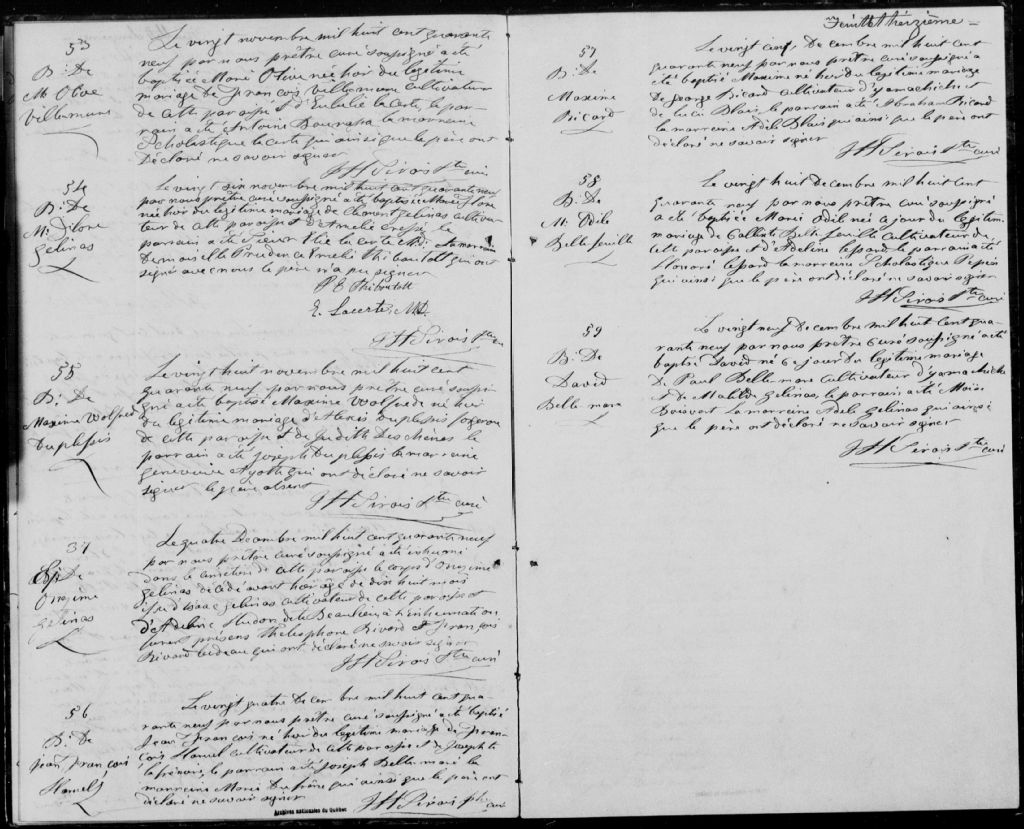 53
B: De
M Olive
Villemure
Le vingt novembre mil huit cent quarante
neuf par nous prêtre curé soussigné a été
baptisée Marie Olive née hier du légitime
mariage de François Villemure cultivateur
de cette paroisse et d'Eulalie Lacerte, le par-
rain a été Antoine Bourassa la marraine
Scholastique Lacerte qui ainsi que le père ont
déclaré ne savoir signer
JH Sirois Ptre curé
54
B: De
M:
Gelinas
Le vingt six novembre mil huit cent quarante neuf
par nous prêtre curé soussigné a été baptisée Marie
née hier du légitime mariage de Clément Gelinas cultiva-
teur de cette paroisse et d'Amélie Cressé, le
parrain a été Sieur Elie Lacerte M.D. et la marraine
Demoiselle Prudence Thibautott qui ont
signé avec nous le père n'a pu signer
E. Lacerte, M.D.
JH Sirois Ptre
55
B: De
Maxime Wolfred
Duplessis
Le vingt huit novembre mil huit cent
quarante neuf par nous prêtre curé soussi-
gné a été baptisé Maxime Wolfrede né hier
du légitime mariage d'Alexis Duplessis forgeron
de cette paroisse et de Judith Deschènes le
parrain a été Joseph Duplessis la marraine
Genevieve Ayotte qui ont déclaré ne savoir
signer le père absent
JH Sirois Ptre curé
37
De
Onesime
Gelinas
Le quatre Decembre mil huit cent quarante neuf
par nous prêtre curé soussigné a été inhumé
dans le cimetière de cette paroisse le corps d'Onesime
Gelinas décédé avant hier agé de dix huit mois
issu d'Isaac Gelinas cultivateur de cette paroisse et
d'Adeline Hudon dite Beaulieu, à l'inhumation
furent présens Thelesphore Rivard et François
Rivard bedeau qui ont déclaré ne savoir signer
JH Sirois Ptre curé
56
B: De
Jean François
Hamel
Le vingt quatre Decembre mil huit cent qua-
rante neuf par nous prêtre curé soussigné a été baptisé
Jean François né hier du légitime mariage de Fran-
çois Hamel cultivateur de cette paroisse et de Josephte
Lefrénois, le parrain a été Joseph Bellemare la
marraine Marie Dufrêne qui ainsi que le père ont
déclaré ne savoir signer
JH Sirois Ptre curé
Archives nationales du Québec
Feuillet treizième
57
B: De
Maxime
Ricard
Le vingt cinq Decembre mil huit cent
quarante neuf par nous prêtre curé soussigné a
été baptisé Maxime né hier du légitime mariage
de George Ricard cultivateur d'Yamachiche et
de Luce Blais, le parrain a été Abraham Ricard
la marraine Adéle Blais qui ainsi que le père ont
déclaré ne savoir signer
JH Sirois Ptre curé
58
B: De
M: Odile
Bellefeuille
Le vingt huit Decembre mil huit cent
quarante neuf par nous prêtre curé soussigné
a été baptisée Marie Odil née ce jour du légitime
mariage de Bellefeuille cultivateur de
cette paroisse et d'Adeline Lesard le parrain a été
Honoré Lesard la marraine Scholastique Pepin
qui ainsi que le père ont déclaré ne savoir signer
JH Sirois Ptre curé
59
B: De
David
Bellemare
Le vingt neuf Decembre mil huit cent qua-
rante neuf par nous prêtre curé soussigné a été
baptisé David né ce jour du légitime mariage
de Paul Bellemare cultivateur d'Yamachiche
et de Matilde Gelinas, le parrain a été Moïse
Boisvert la marraine Adele Gelinas qui ainsi
que le père ont déclaré ne savoir signer
JH Sirois Ptre curé